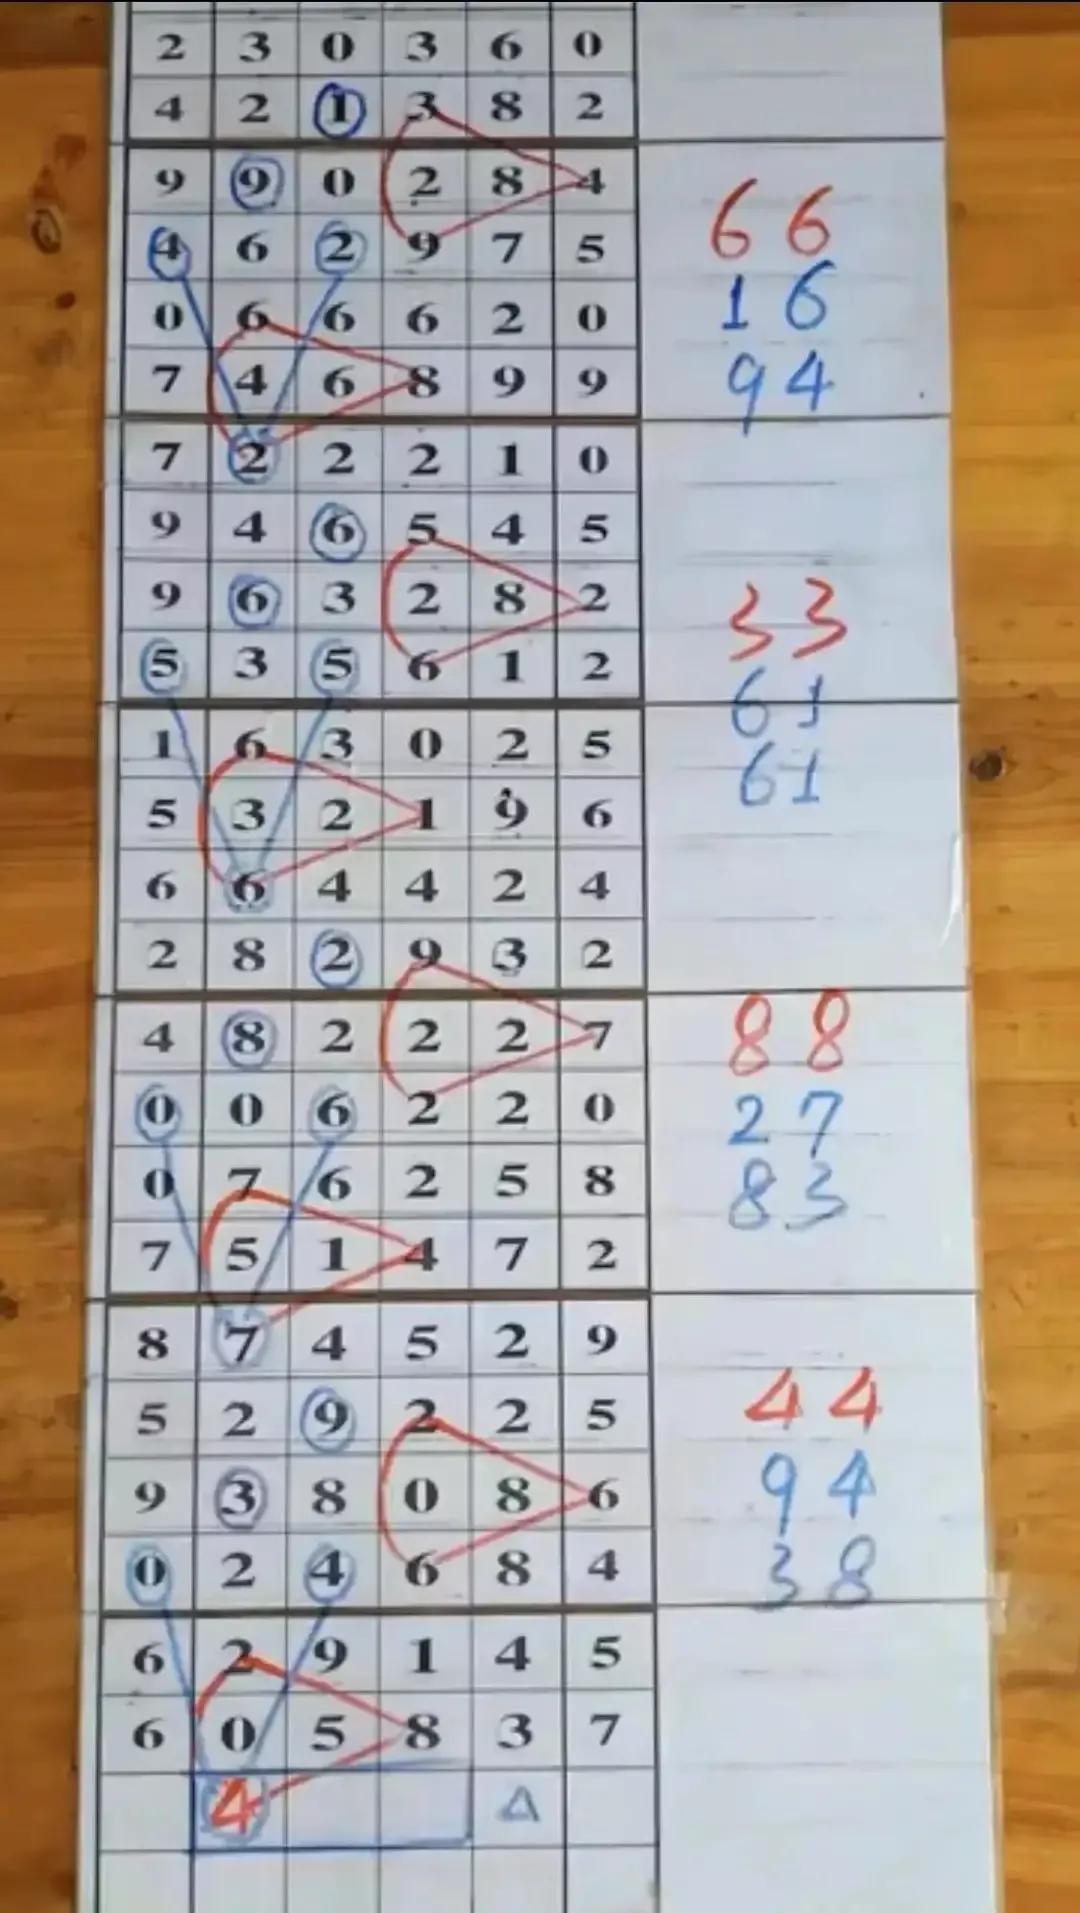 2 3 0 3 6 0
4 2 1 3 8 2
9 9 0 2 8 4
4 6 2 9 7 5
66
0 6 6 6 2 0
16
7 4 6 8 9 9
94
7 2 2 2 1 0
9 4 6 5 4 5
9 6 3 2 8 2
33
5 3 5 6 1 2
61
1 6 3 0 2 5
61
5 3 2 1 9 6
6 6 4 4 2 4
2 8 2 9 3 2
4 8 2 2 2 7
88
0 0 6 2 2 0
27
0 7 6 2 5 8
83
7 5 1 4 7 2
8 7 4 5 2 9
5 2 9 2 2 5
44
9 3 8 0 8 6
94
0 2 4 6 8 4
38
6 2 9 1 4 5
6 0 5 8 3 7
4